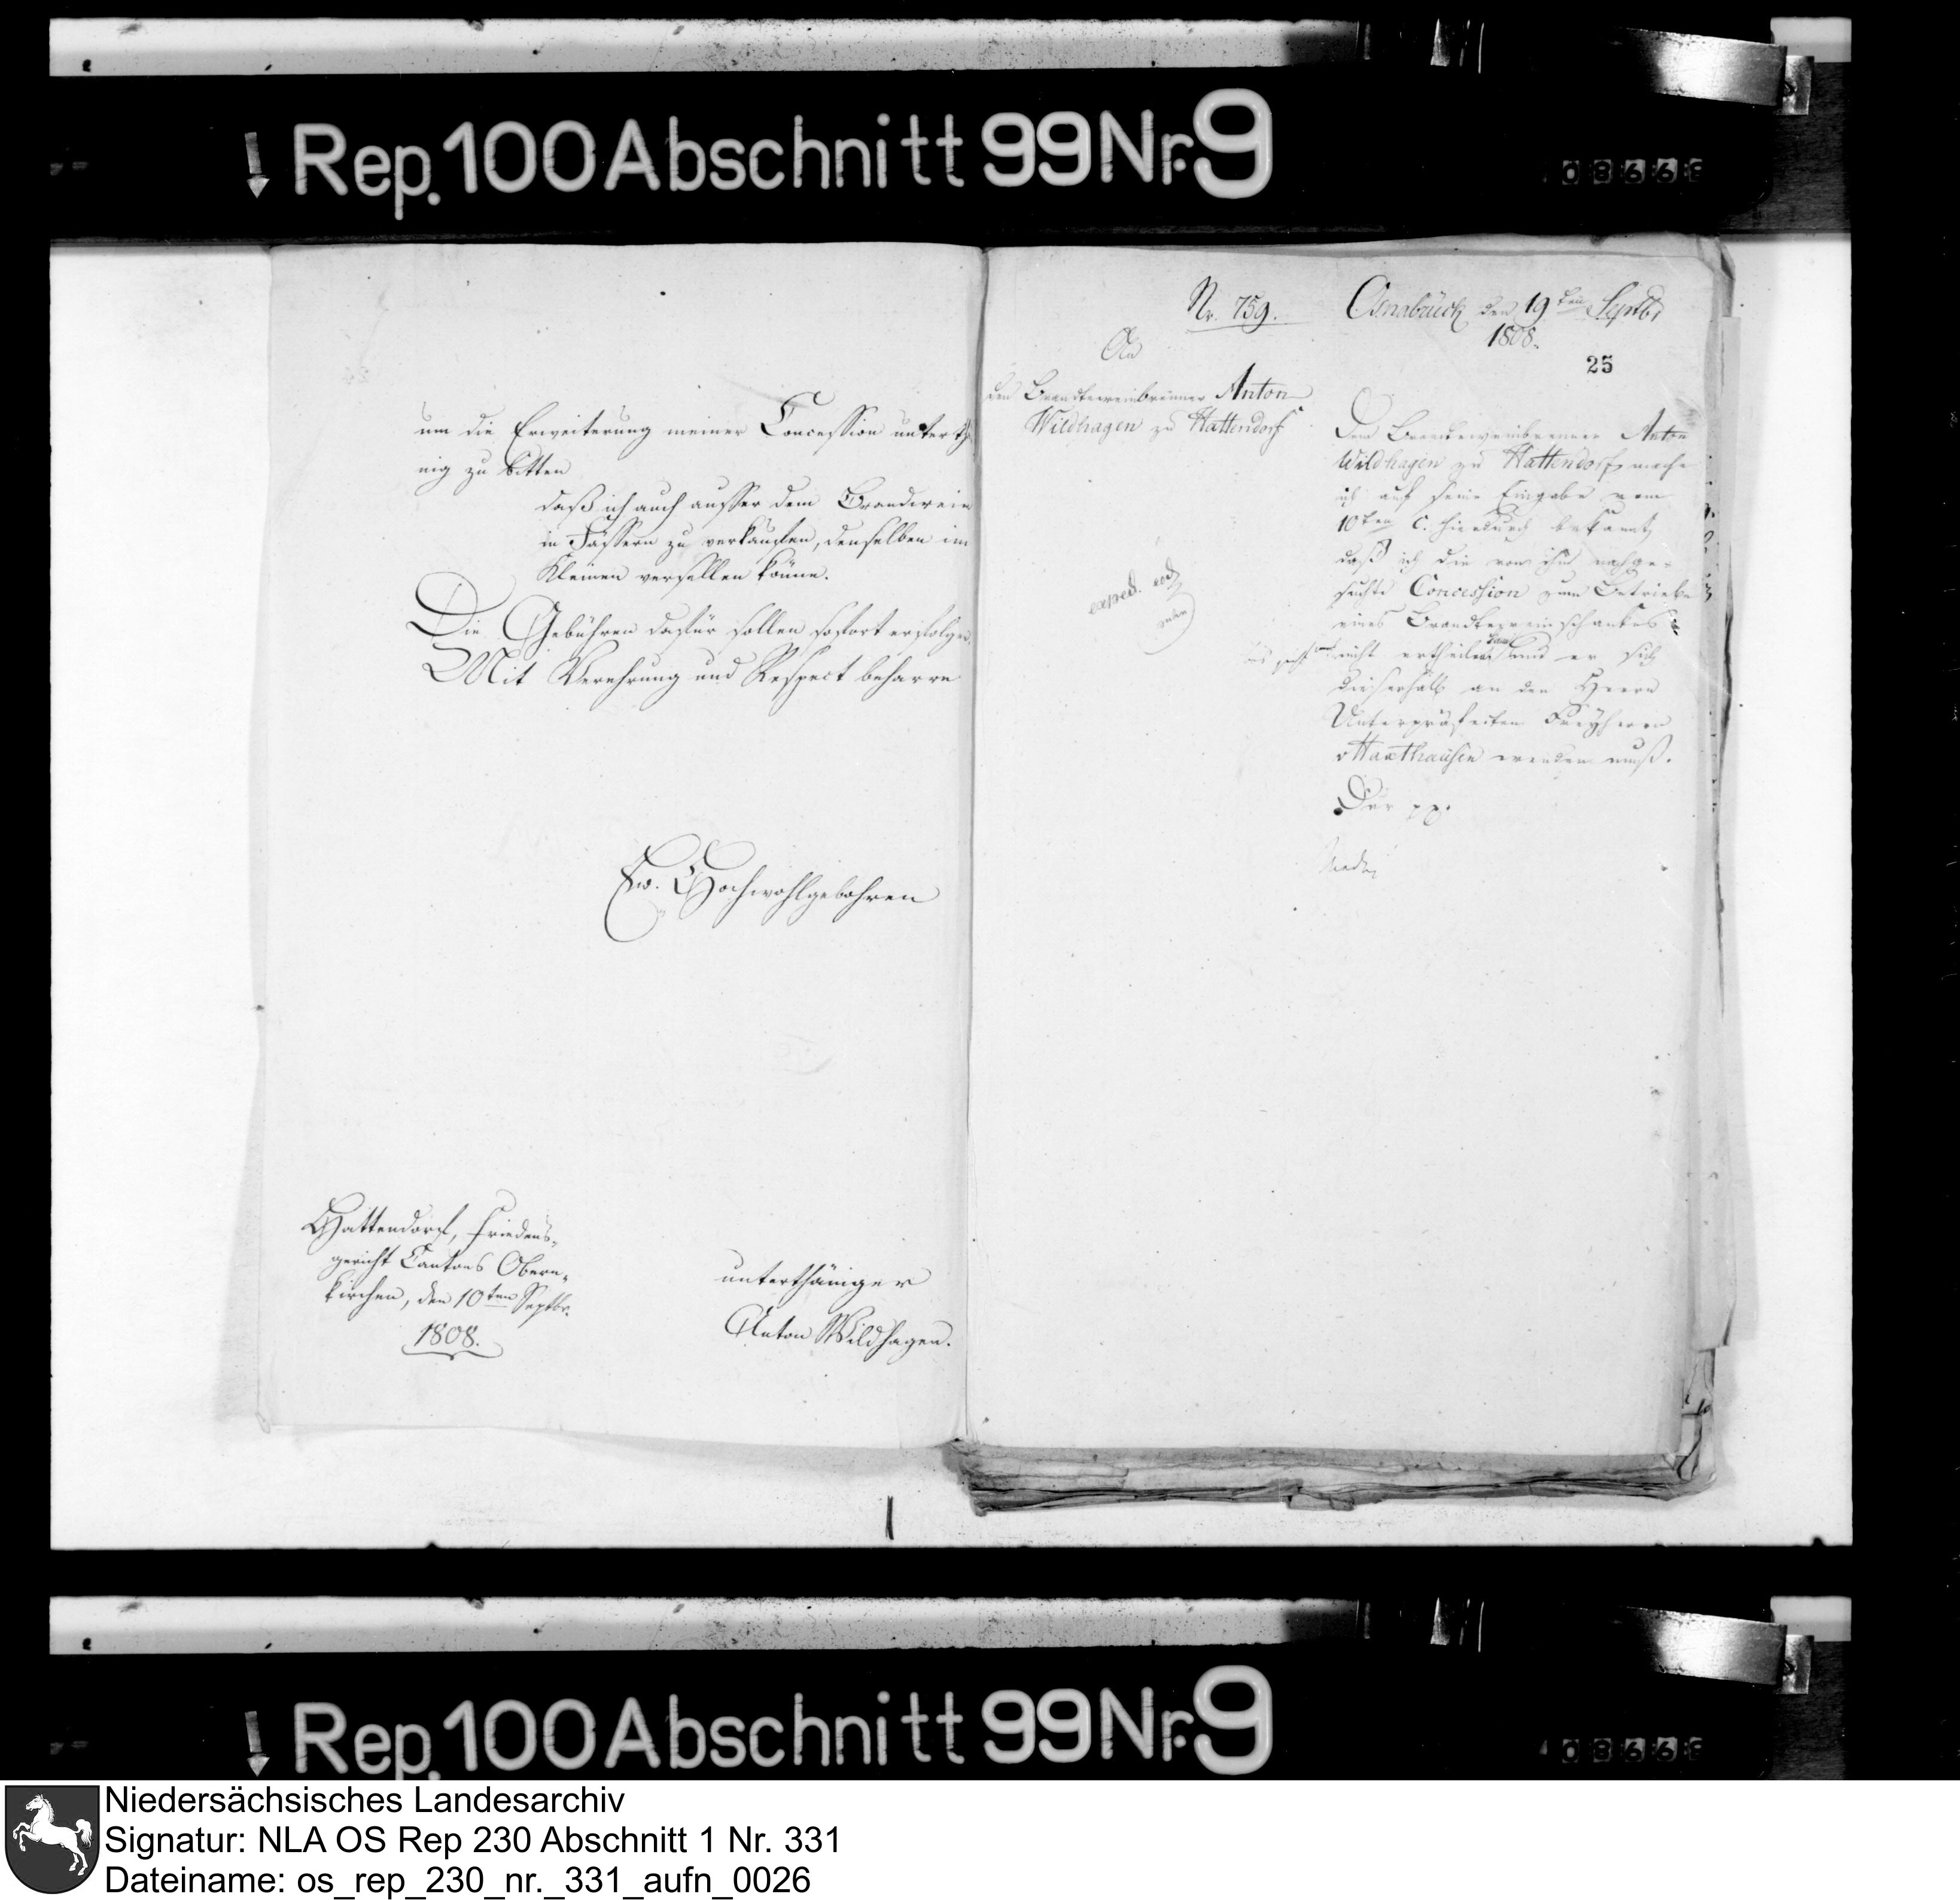 Rep. 100 Abschnitt 99 Nr. 9
um die Erweiterung meiner Concession unterthä-
nig zu bitten
daß ich auch ausser dem Brandwein
in Fässern zu verkaufen, denselben im
Kleinen versellen könne.
Die Gebühren dafür sollen sofort erfolgen.
Mit Verehrung und Respect beharre
Ew. Hochwohlgebohren
Hattendorf, Friedens-
gericht Cantons Obern-
kirchen, den 10ten Septbr.
1808.
unterthäniger
Anton Wildhagen.
Nr. 759.
Osnabrück den 19ten Septbr
1808.
25
An
den Brandteweinbrenner Anton
Wildhagen zu Hattendorf
exped. eod.
Dem Brandteweinbrenner Anton
Wildhagen zu Hattendorf mache
ich auf seine Eingabe vom
10ten c. hierdurch bekannt,
daß ich die von ihm nachge-
suchte Concession zum Betriebe
eines Brandteweinschankes
nicht ertheilen kann und er sich
dieserhalb an den Herrn
Unterpräfecten Freyherrn
v Haxthausen wenden muß.
Der pp.
Rep. 100 Abschnitt 99 Nr. 9
Niedersächsisches Landesarchiv
Signatur: NLA OS Rep 230 Abschnitt 1 Nr. 331
Dateiname: os_rep_230_nr._331_aufn_0026